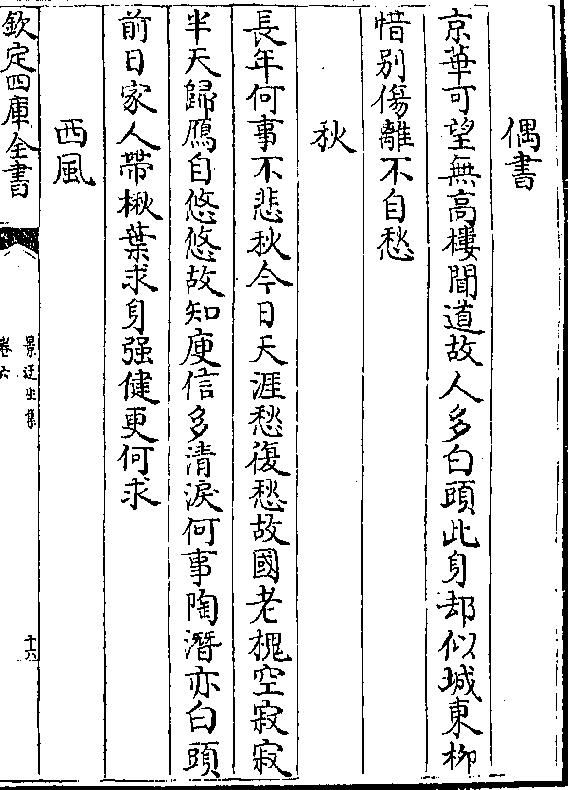 偶書
京華可望無高樓聞道故人多白頭此身却似城東柳
惜别傷離不自愁
秋
長年何事不悲秋今日天涯愁復愁故國老槐空寂寂
半天歸鴈自悠悠故知庾信多清淚何事陶潛亦白頭
前日家人帶楸葉求身强健更何求
西風
欽定四庫全書
景迂生集
卷六
十六